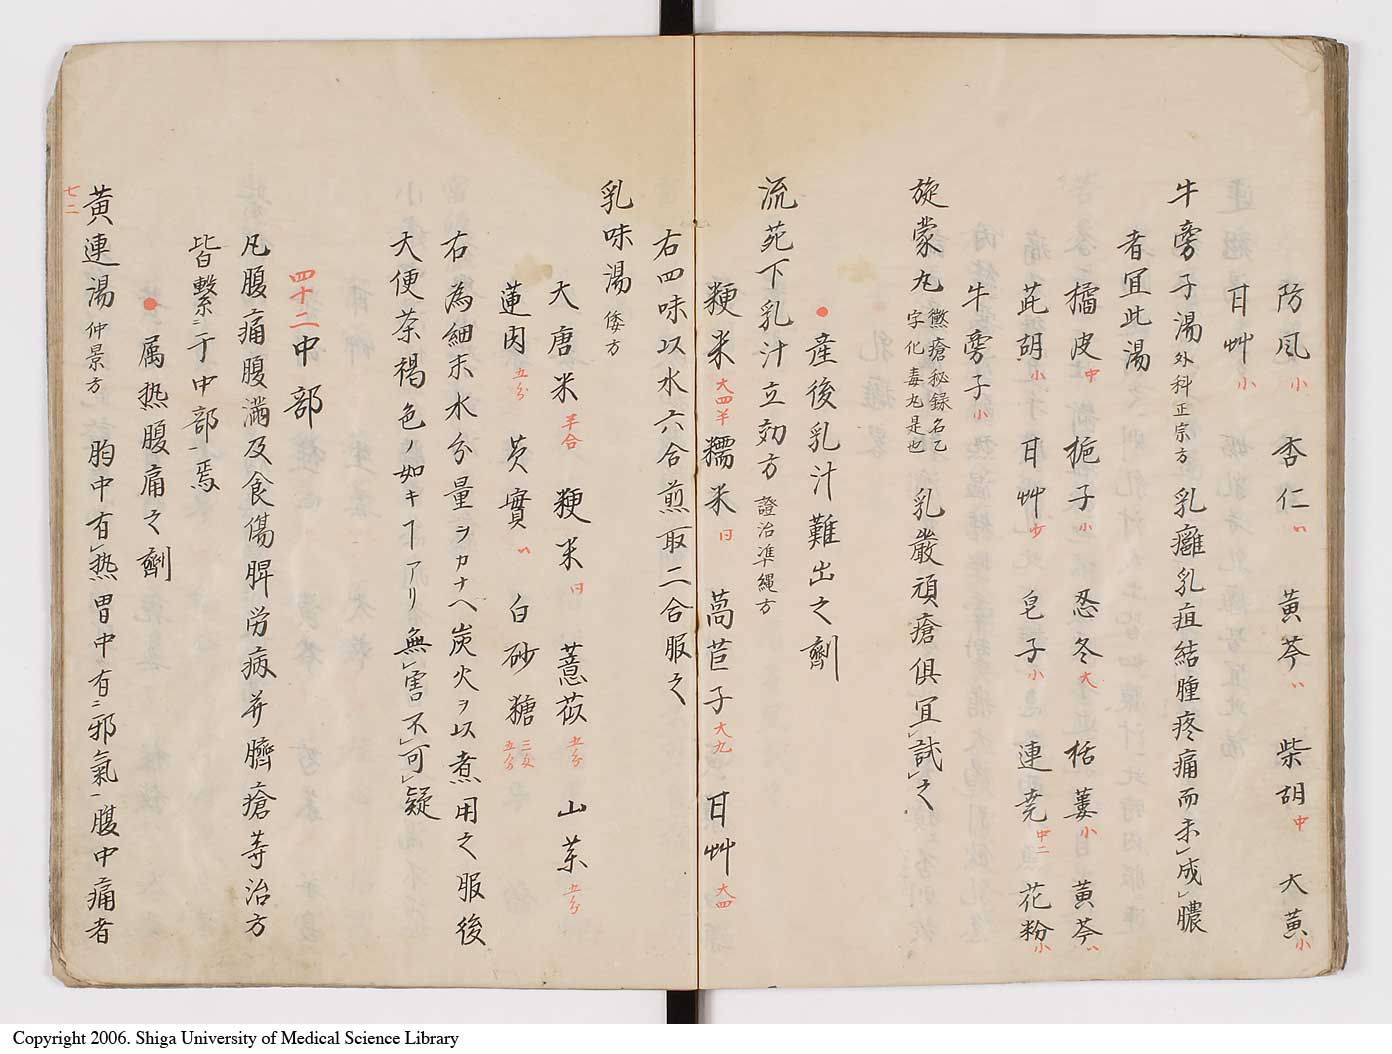 防風小 杏仁〃 黄芩〃 柴胡中 大黄小
甘艸小
牛旁子湯 外科正宗方 乳癰乳疽結腫疼痛而未成膿
者宜此湯
橘皮中 梔子小 忍冬大 栝蔞小 黄芩〃
茈胡小 甘艸少 皂子小 連尭中二 花粉小
牛旁子小
旋蒙丸 黴瘡秘録名乙字化毒丸是也 乳巌頑瘡俱宜試之
●産後乳汁難出之劑
流苑下乳汁立効方 證治凖縄方
粳米大四半 糯米同 萵苣子大九 甘艸大四
右四味以水六合煎取二合服之
乳味湯 倭方
大唐米半合 粳米同 薏苡五分 山茱五分
蓮肉五分 芡實〃 白砂糖三匁五分
右為細末水分量ヲカナヘ炭火ヲ以煮用之服後
大便茶褐色ノ如キヿアリ無害不可疑
四十二中部
凡腹痛腹滿及食傷脾労病并臍瘡等治方
皆繫二于中部一焉
●属热腹痛之劑
七二
黄連湯 仲景方 胸中有热胃中有二邪氣一腹中痛者
Copyright 2006. Shiga University of Medical Science Library